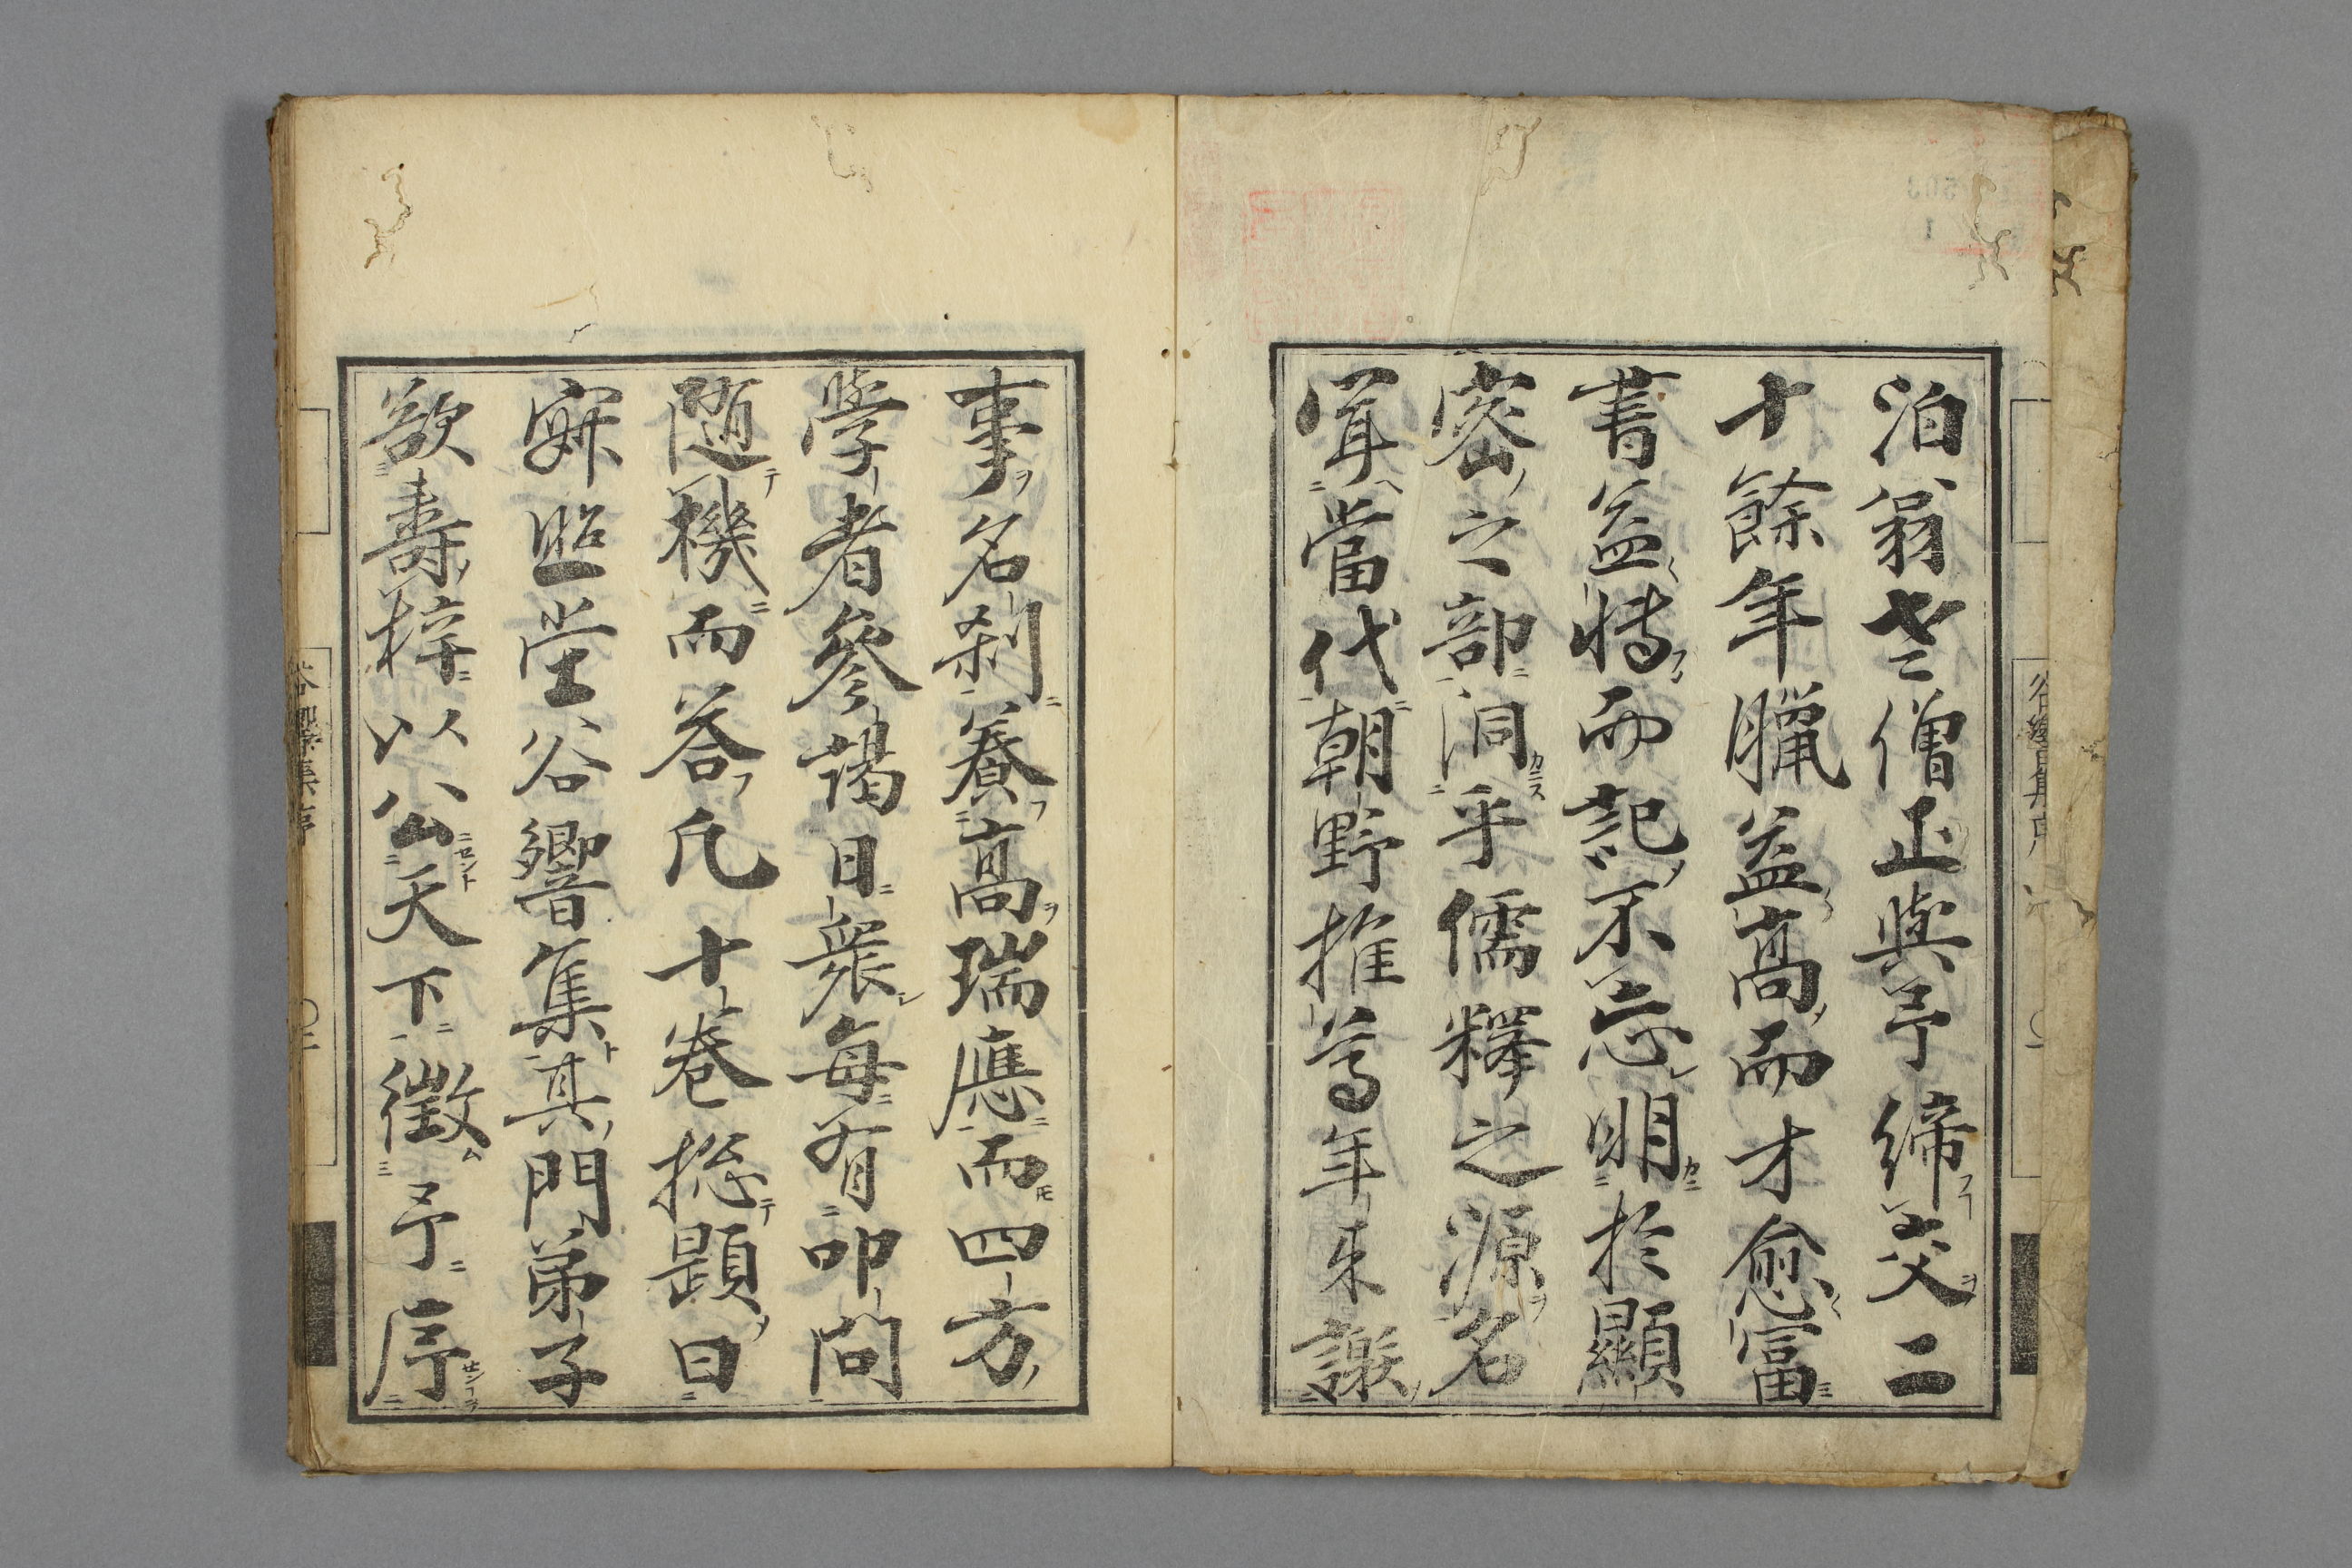 泊翁老僧正與予締交二
十餘年臘益高而才愈富
書益博而記不忘明於顯
密之部洞乎儒釋之源名
聳當代朝野推尊年來謝
事名刹養高瑞應而四方
學者參謁日衆每有叩問
随機而答凡十卷総題曰
寂照堂谷響集其門弟子
欲壽梓以公天下徵予序